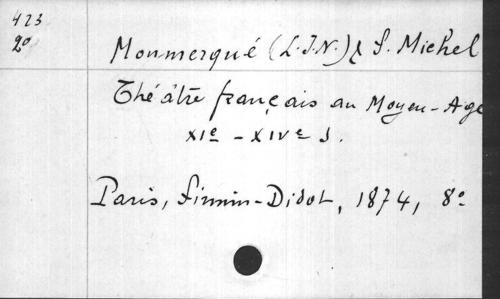 423
20
Monmerqué (L.J.N.) & F. Michel
Théâtre français au Moyen-Age
XIe - XIVe s.
Paris, Firmin-Didot, 1874, 8°